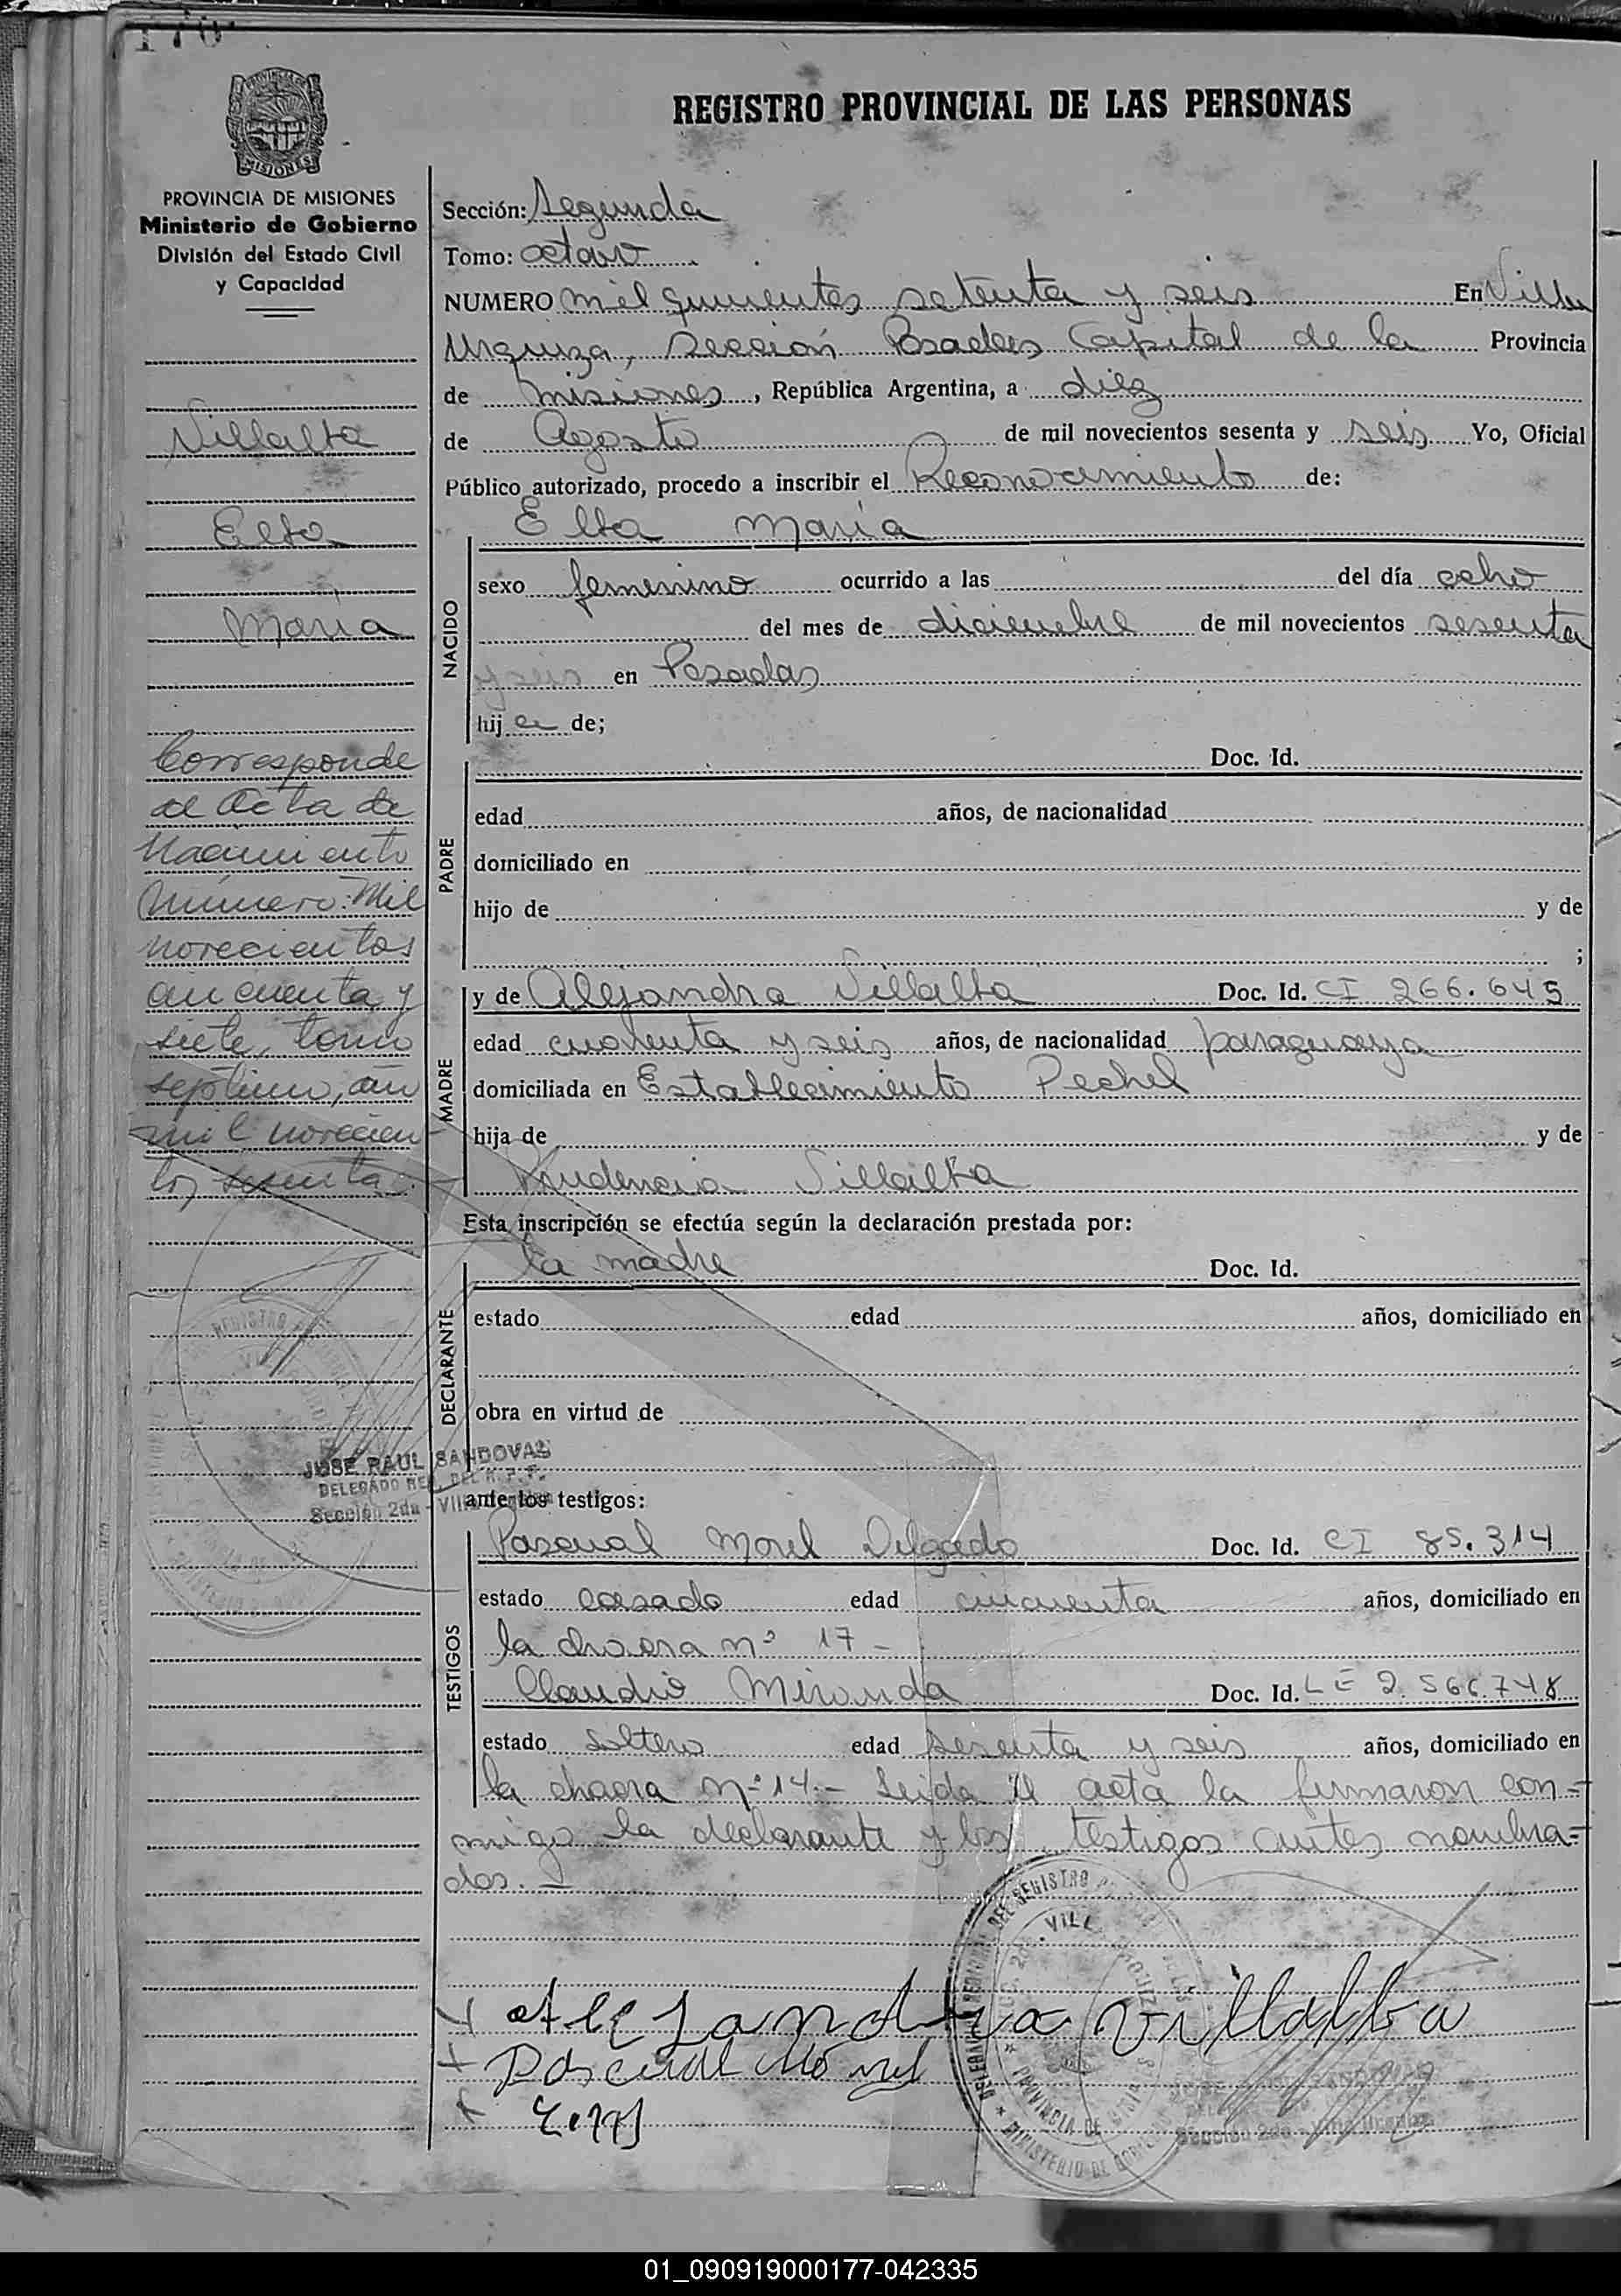 176
PROVINCIA DE MISIONES
Ministerio de Gobierno
División del Estado Civil
y Capacidad
Villalba
Elba
María
Corresponde
al Acta de
Nacimiento
Número: Mil
novecientos
cincuenta y
siete, tomo
septimo, año
mil novecien
tos sesenta.
JOSE RAUL SANDOVAL
DELEGADO REG. DEL R. P. P.
Sección 2da - Villa Urquiza
REGISTRO PROVINCIAL DE LAS PERSONAS
Sección: Segunda
Tomo: octavo
NUMERO mil quinientos setenta y seis En Villa
Urquiza, Sección Posadas Capital de la Provincia
de Misiones, República Argentina, a diez
de Agosto de mil novecientos sesenta y seis Yo, Oficial
Público autorizado, procedo a inscribir el Reconocimiento de:
Elba María
NACIDO
sexo femenino ocurrido a las del día ocho
del mes de diciembre de mil novecientos sesenta
y seis en Posadas
hij a de;
PADRE
Doc. Id.
edad años, de nacionalidad
domiciliado en
hijo de y de
;
MADRE
y de Alejandra Villalba Doc. Id. CI 266.645
edad cuarenta y seis años, de nacionalidad paraguaya
domiciliada en Establecimiento Pechel
hija de y de
Prudencia Villalba
Esta inscripción se efectúa según la declaración prestada por:
DECLARANTE
la madre Doc. Id.
estado edad años, domiciliado en
obra en virtud de
ante los testigos:
TESTIGOS
Pascual Morel Delgado Doc. Id. CI 85.314
estado casado edad cincuenta años, domiciliado en
la chacra nº 17 -
Claudio Miranda Doc. Id. LE 2.566.748
estado soltero edad sesenta y seis años, domiciliado en
la chacra nº 14.- Leida el acta la firmaron con=
migo la declarante y los testigos antes nombra=
dos. -
Alejandra Villalba
Pascual Morel
Sección 2da - Villa Urquiza
01_090919000177-042335